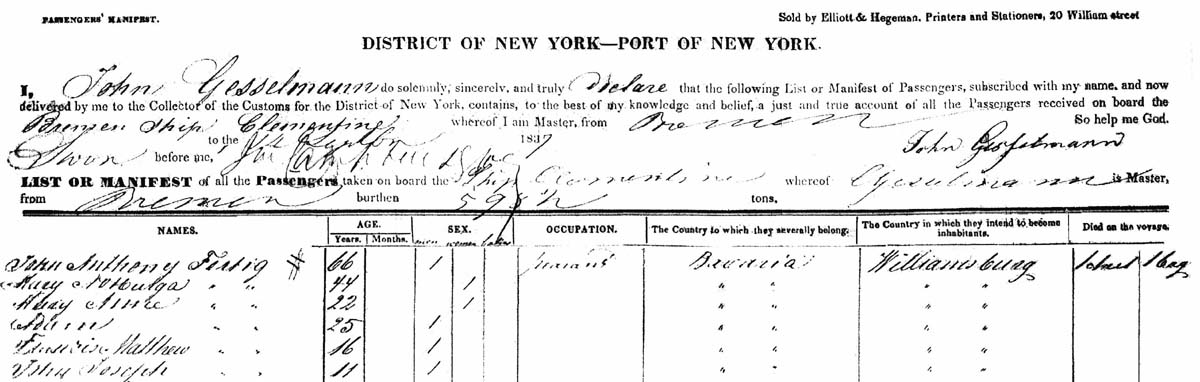 PASSENGERS' MANIFEST.
Sold by Elliott & Hegeman. Printers and Stationers, 20 William street
DISTRICT OF NEW YORK—PORT OF NEW YORK.
I, John Gesselmann do solemnly, sincerely, and truly Declare that the following List or Manifest of Passengers, subscribed with my name, and now
delivered by me to the Collector of the Customs for the District of New York, contains, to the best of my knowledge and belief, a just and true account of all the Passengers received on board the
Bremen Ship Clementine whereof I am Master, from Bremen So help me God.
Sworn to the 1837 John Gesselmann
before me,
LIST OR MANIFEST of all the Passengers taken on board the Ship Clementine whereof Gesselmann is Master,
from Bremen burthen tons.
NAMES. AGE. Years. Months. SEX. men women OCCUPATION. The Country to which they severally belong. The Country in which they intend to become inhabitants. Died on the voyage.
John Anthony Fertig # 66 1 Bavaria Williamsburg 1 chest 1 bag
Mary " " 44 1 " " " "
Mary Anne " " 22 1 " " " "
Adam " " 25 1 " " " "
Francis Matthew " " 16 1 " " " "
John Joseph " " 11 1 " " " "